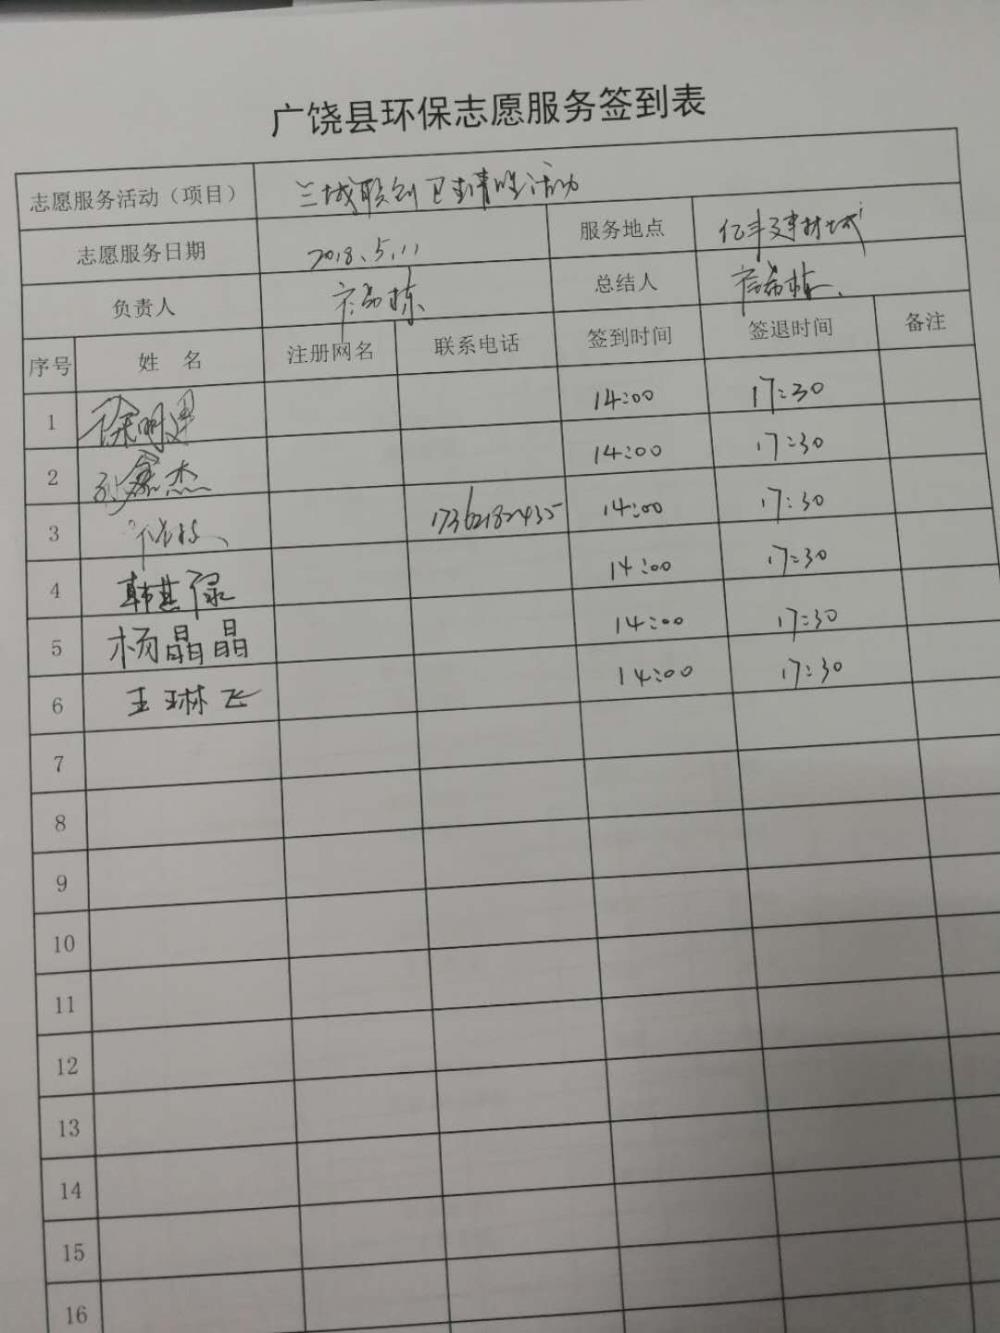 广饶县环保志愿服务签到表
志愿服务活动（项目） 三城联创卫生清洁活动
志愿服务日期 2018.5.11 服务地点 亿丰建材城
负责人 总结人
序号 姓 名 注册网名 联系电话 签到时间 签退时间 备注
1 徐明 14:00 17:30
2 杰 14:00 17:30
3 17362182435 14:00 17:30
4 韩其禄 14:00 17:30
5 杨晶晶 14:00 17:30
6 王琳飞 14:00 17:30
7
8
9
10
11
12
13
14
15
16